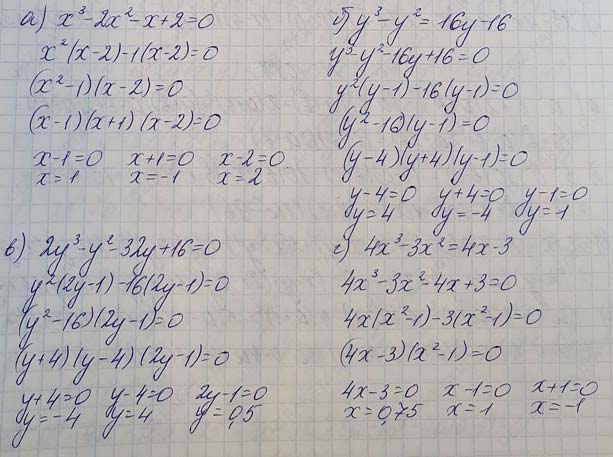 а) x³-2x²-x+2=0
x²(x-2)-1(x-2)=0
(x²-1)(x-2)=0
(x-1)(x+1)(x-2)=0
x-1=0 x+1=0 x-2=0
x=1 x=-1 x=2
б) y³-y²=16y-16
y³-y²-16y+16=0
y²(y-1)-16(y-1)=0
(y²-16)(y-1)=0
(y-4)(y+4)(y-1)=0
y-4=0 y+4=0 y-1=0
y=4 y=-4 y=1
в) 2y³-y²-32y+16=0
y²(2y-1)-16(2y-1)=0
(y²-16)(2y-1)=0
(y+4)(y-4)(2y-1)=0
y+4=0 y-4=0 2y-1=0
y=-4 y=4 y=0,5
г) 4x³-3x²=4x-3
4x³-3x²-4x+3=0
4x(x²-1)-3(x²-1)=0
(4x-3)(x²-1)=0
4x-3=0 x-1=0 x+1=0
x=0,75 x=1 x=-1